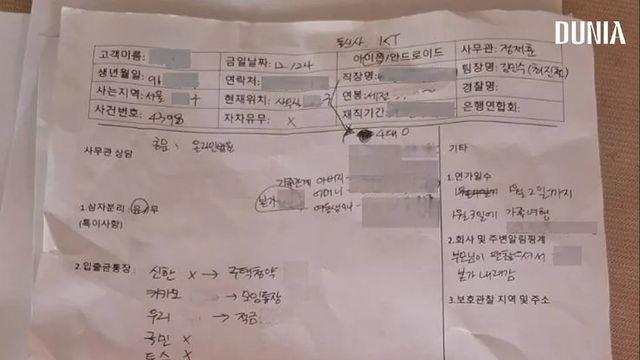 DUNIA
통신사 KT
고객이름:
금일날짜: 12/24
아이폰/안드로이드
사무관: 정재훈
생년월일: 96
연락처:
직장명:
팀장명: 김민수
사는지역: 서울
현재위치:
연봉: 세전
경찰명:
사건번호: 4398
자차유무: X
재직기간:
은행연합회:
4대 O
사무관 상담
용무: 온라인법원
기타
가족관계 아버지
본가
어머니
1. 삼자분리 유/무
(특이사항)
1. 연가일수
1월 2일까지
1월 3일에 가족여행
2. 회사 및 주변알림핑계
부모님이 편찮으셔서
본가 내려감
2. 입출금통장:
신한 X → 주택청약
카카오 → 모임통장
우리 → 적금
국민 X
토스 X
3. 보호관찰 지역 및 주소